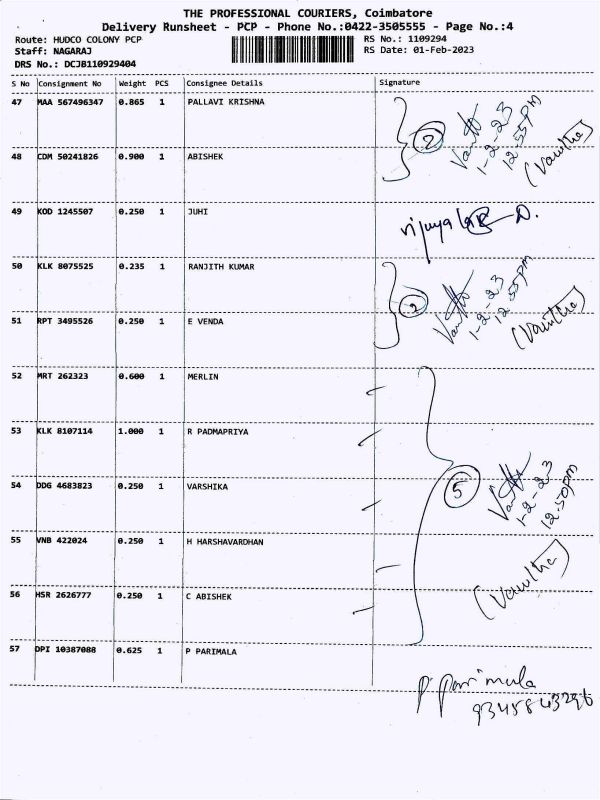 THE PROFESSIONAL COURIERS, Coimbatore
Delivery Runsheet - PCP - Phone No.:0422-3505555 - Page No.:4
Route: HUDCO COLONY PCP RS No.: 1109294
Staff: NAGARAJ RS Date: 01-Feb-2023
DRS No.: DCJB110929404
S No Consignment No Weight PCS Consignee Details Signature
47 MAA 567496347 0.865 1 PALLAVI KRISHNA
2 1-2-23 12.55pm (Vanitha)
48 CDM 50241826 0.900 1 ABISHEK
49 KOD 1245507 0.250 1 JUHI
D.
50 KLK 8075525 0.235 1 RANJITH KUMAR
2 1-2-23 12.55pm (Vanitha)
51 RPT 3495526 0.250 1 E VENDA
52 MRT 262323 0.600 1 MERLIN
53 KLK 8107114 1.000 1 R PADMAPRIYA
54 DDG 4683823 0.250 1 VARSHIKA
5 1-2-23 12.50pm
55 VNB 422024 0.250 1 H HARSHAVARDHAN
(Vanitha)
56 HSR 2626777 0.250 1 C ABISHEK
57 DPI 10387088 0.625 1 P PARIMALA
P. Parimula
9345843296